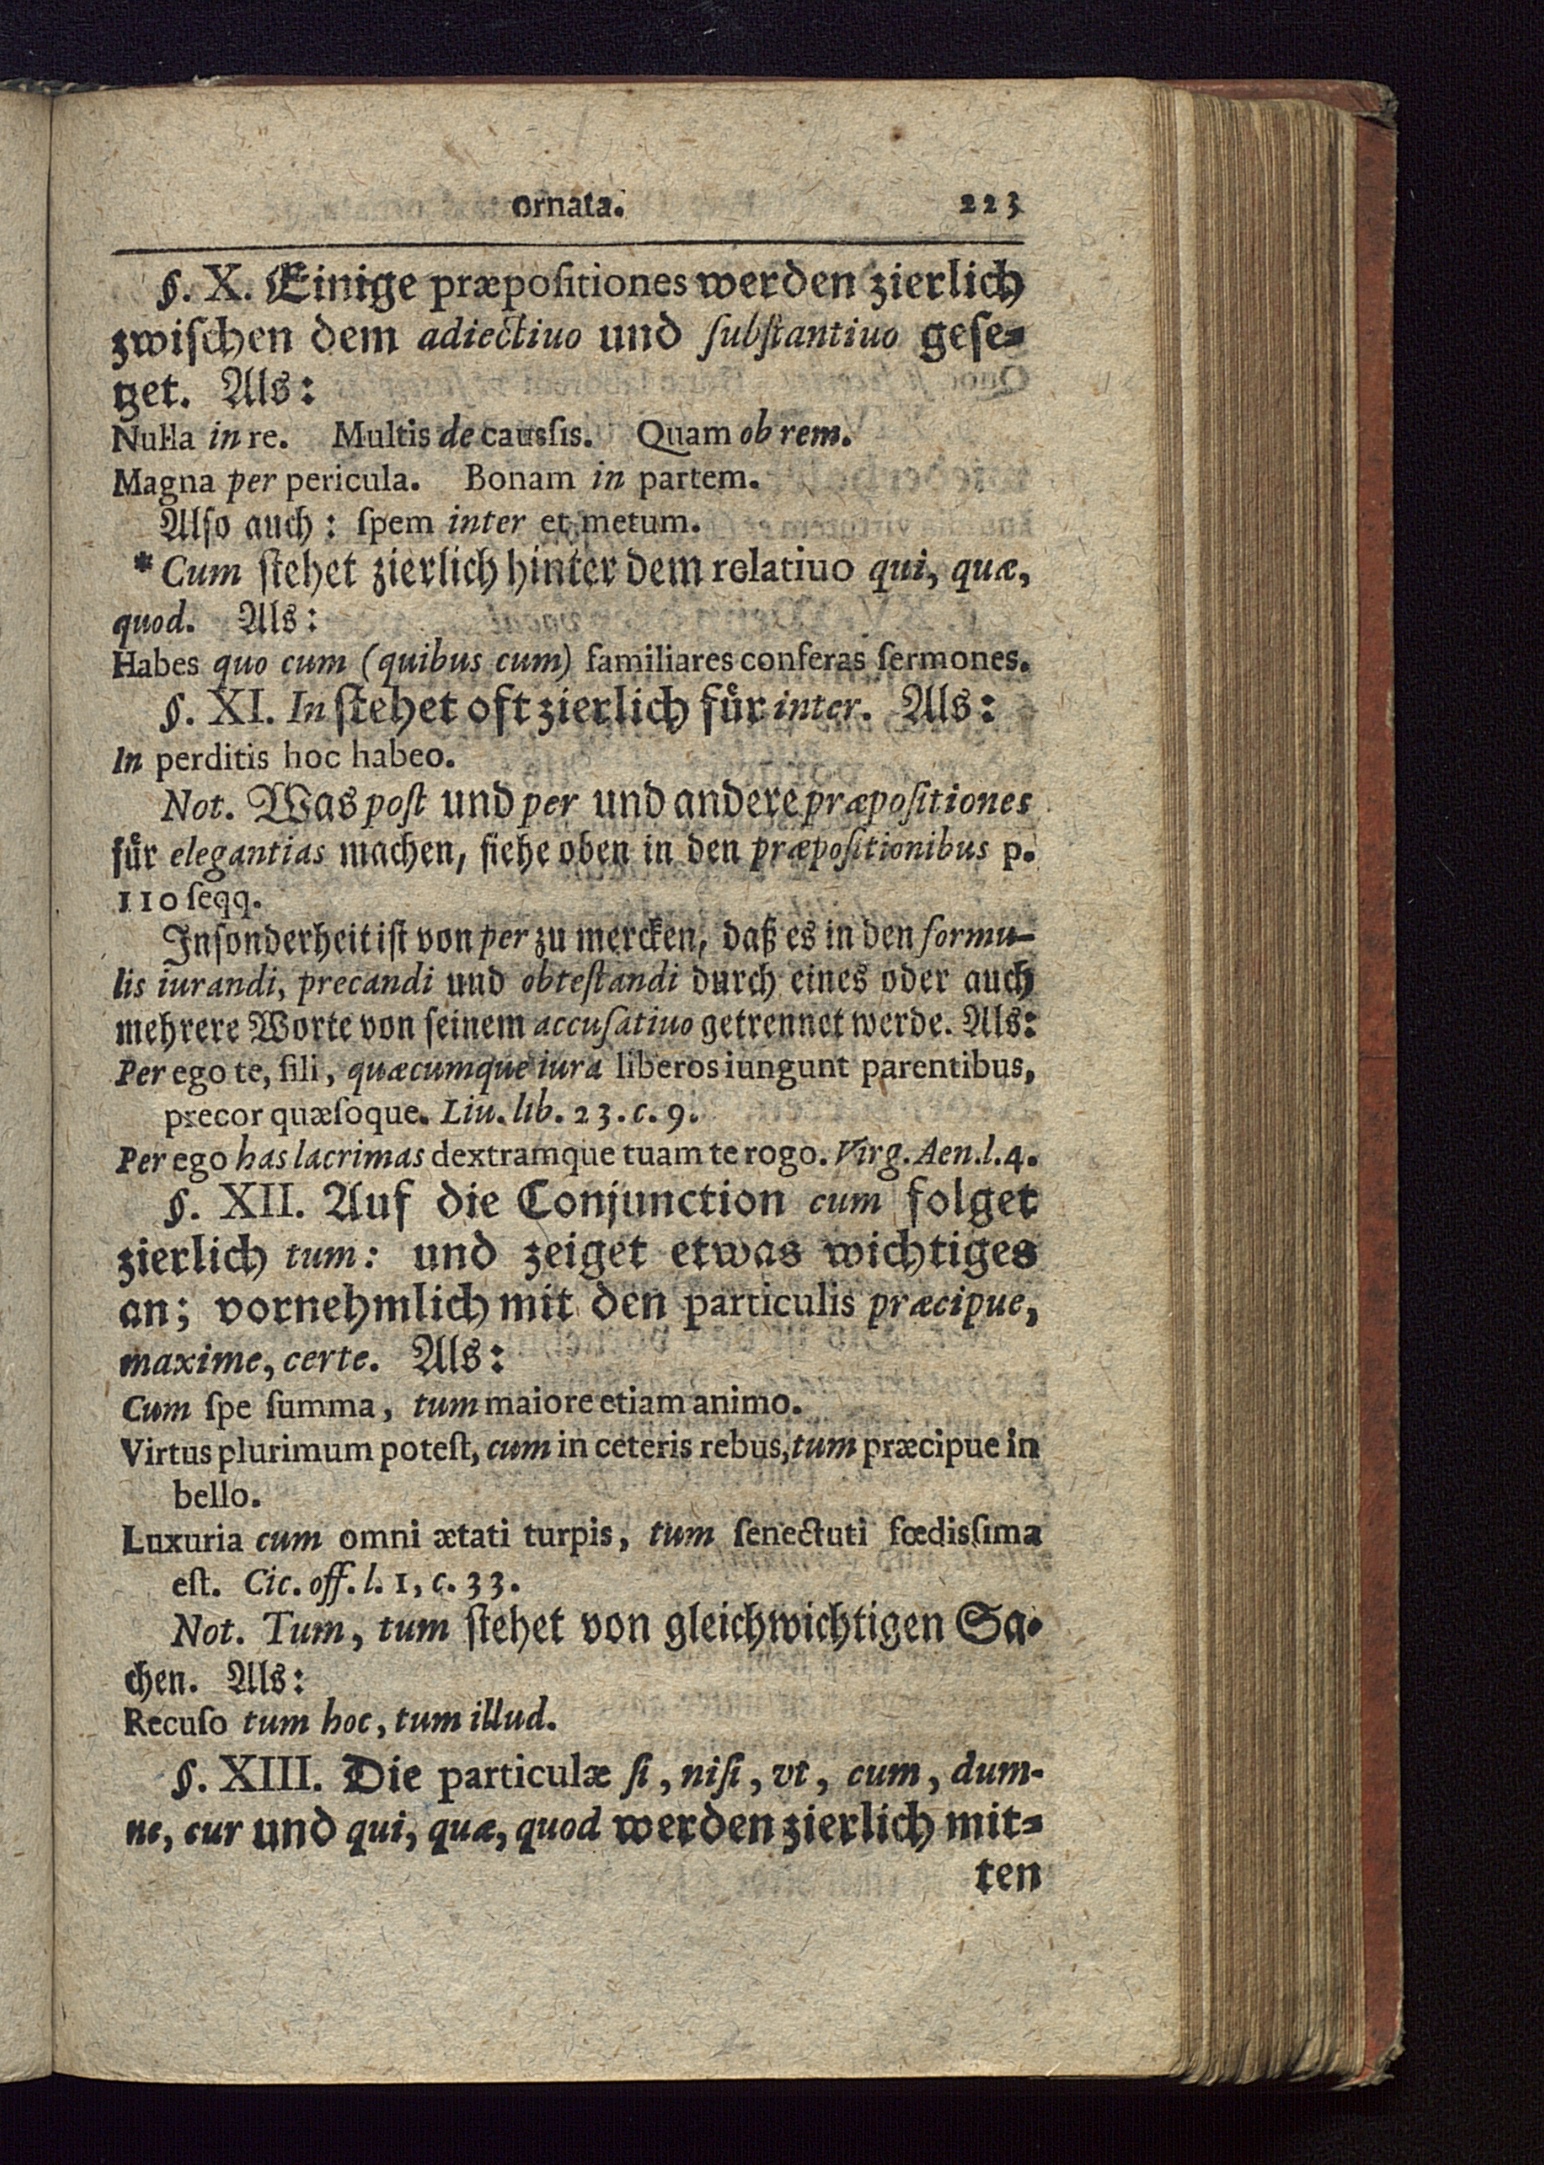 ornata. 223
§. X. Einige præpoſitiones werden zierlich
zwiſchen dem adiectiuo und ſubſtantiuo geſe-
tzet. Als:
Nulla in re. Multis de cauſsis. Quam ob rem.
Magna per pericula. Bonam in partem.
Alſo auch: ſpem inter et metum.
* Cum ſtehet zierlich hinter dem relatiuo qui, quæ,
quod. Als:
Habes quo cum (quibus cum) familiares conferas ſermones.
§. XI. In ſtehet oft zierlich fuͤr inter. Als:
In perditis hoc habeo.
Not. Was poſt und per und andere præpoſitiones
fuͤr elegantias machen, ſiehe oben in den præpoſitionibus p.
110 ſeqq.
Inſonderheit iſt von per zu mercken, daß es in den formu-
lis iurandi, precandi und obteſtandi durch eines oder auch
mehrere Worte von ſeinem accuſatiuo getrennet werde. Als:
Per ego te, fili, quæcumque iura liberos iungunt parentibus,
precor quæſoque. Liu. lib. 23. c. 9.
Per ego has lacrimas dextramque tuam te rogo. Virg. Aen. l. 4.
§. XII. Auf die Conjunction cum folget
zierlich tum: und zeiget etwas wichtiges
an; vornehmlich mit den particulis præcipue,
maxime, certe. Als:
Cum ſpe ſumma, tum maiore etiam animo.
Virtus plurimum poteſt, cum in ceteris rebus, tum præcipue in
bello.
Luxuria cum omni ætati turpis, tum ſenectuti fœdisſima
eſt. Cic. off. l. 1, c. 33.
Not. Tum, tum ſtehet von gleichwichtigen Sa-
chen. Als:
Recuſo tum hoc, tum illud.
§. XIII. Die particulæ ſi, niſi, vt, cum, dum-
ne, cur und qui, quæ, quod werden zierlich mit-
ten